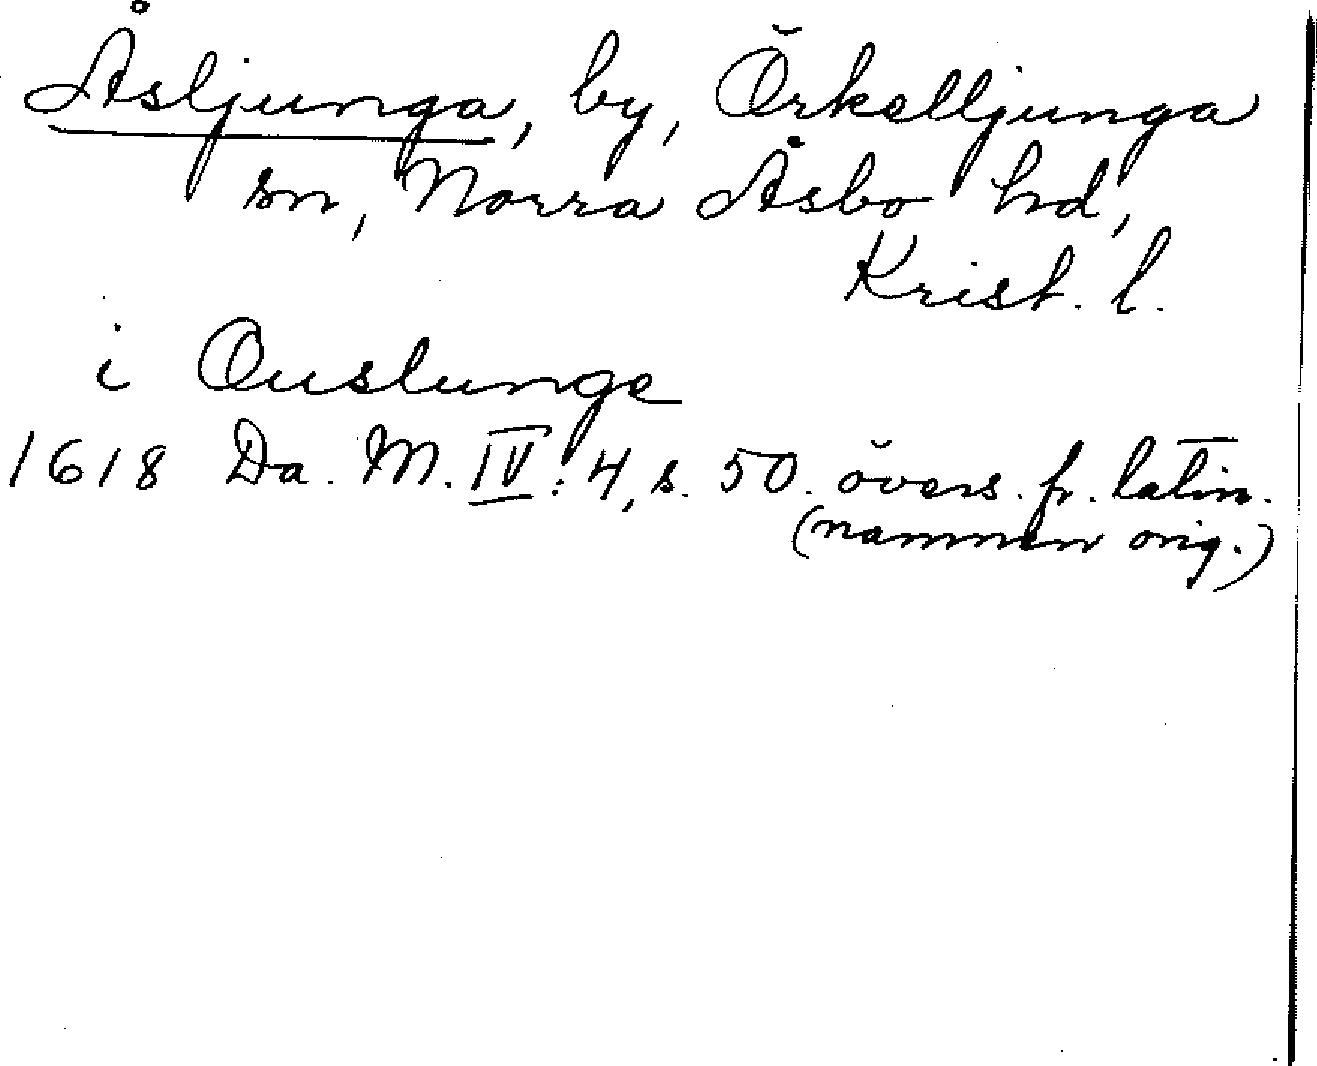 Åsljunga, by, Örkelljunga
sn, Norra Åsbo hd,
Krist. l.
i Ouslunge
1618 Da. M. IV: 4, s. 50. övers. fr. latin.
(namnen orig.)